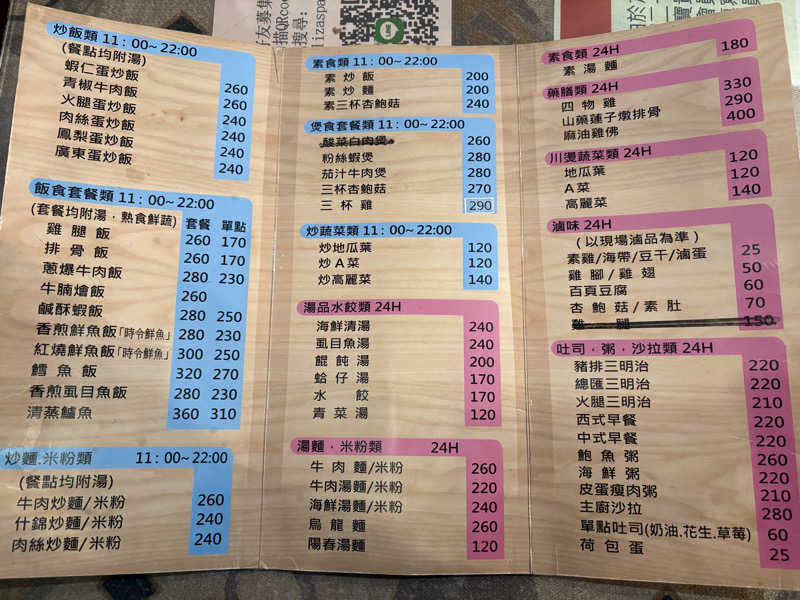 友募集
描QRco
搜尋:
lizaspa
炒飯類 11：00~22:00
(餐點均附湯)
蝦仁蛋炒飯 260
青椒牛肉飯 260
火腿蛋炒飯 240
肉絲蛋炒飯 240
鳳梨蛋炒飯 240
廣東蛋炒飯 240
飯食套餐類 11：00~22:00
(套餐均附湯，熟食鮮蔬) 套餐 單點
雞腿飯 260 170
排骨飯 260 170
蔥爆牛肉飯 280 230
牛腩燴飯 260
鹹酥蝦飯 280 250
香煎鮮魚飯「時令鮮魚」 280 230
紅燒鮮魚飯「時令鮮魚」 300 250
鱈魚飯 320 270
香煎虱目魚飯 280 230
清蒸鱸魚 360 310
炒麵.米粉類 11：00~22:00
(餐點均附湯)
牛肉炒麵/米粉 260
什錦炒麵/米粉 240
肉絲炒麵/米粉 240
素食類 11：00~22:00
素炒飯 200
素炒麵 200
素三杯杏鮑菇 240
煲食套餐類 11：00~22:00
酸菜白肉煲 260
粉絲蝦煲 280
茄汁牛肉煲 280
三杯杏鮑菇 270
三杯雞 290
炒蔬菜類 11：00~22:00
炒地瓜葉 120
炒A菜 120
炒高麗菜 140
湯品水餃類 24H
海鮮清湯 240
虱目魚湯 240
餛飩湯 200
蛤仔湯 170
水餃 170
青菜湯 120
湯麵．米粉類 24H
牛肉麵/米粉 260
牛肉湯麵/米粉 220
海鮮湯麵/米粉 240
烏龍麵 260
陽春湯麵 120
素食類 24H
素湯麵 180
藥膳類 24H
四物雞 330
山藥蓮子燉排骨 290
麻油雞佛 400
川燙蔬菜類 24H
地瓜葉 120
A菜 120
高麗菜 140
滷味 24H
(以現場滷品為準)
素雞/海帶/豆干/滷蛋 25
雞腳/雞翅 50
百頁豆腐 60
杏鮑菇/素肚 70
雞腿 150
吐司．粥．沙拉類 24H
豬排三明治 220
總匯三明治 220
火腿三明治 210
西式早餐 220
中式早餐 220
鮑魚粥 260
海鮮粥 220
皮蛋瘦肉粥 210
主廚沙拉 280
單點吐司(奶油.花生.草莓) 60
荷包蛋 25